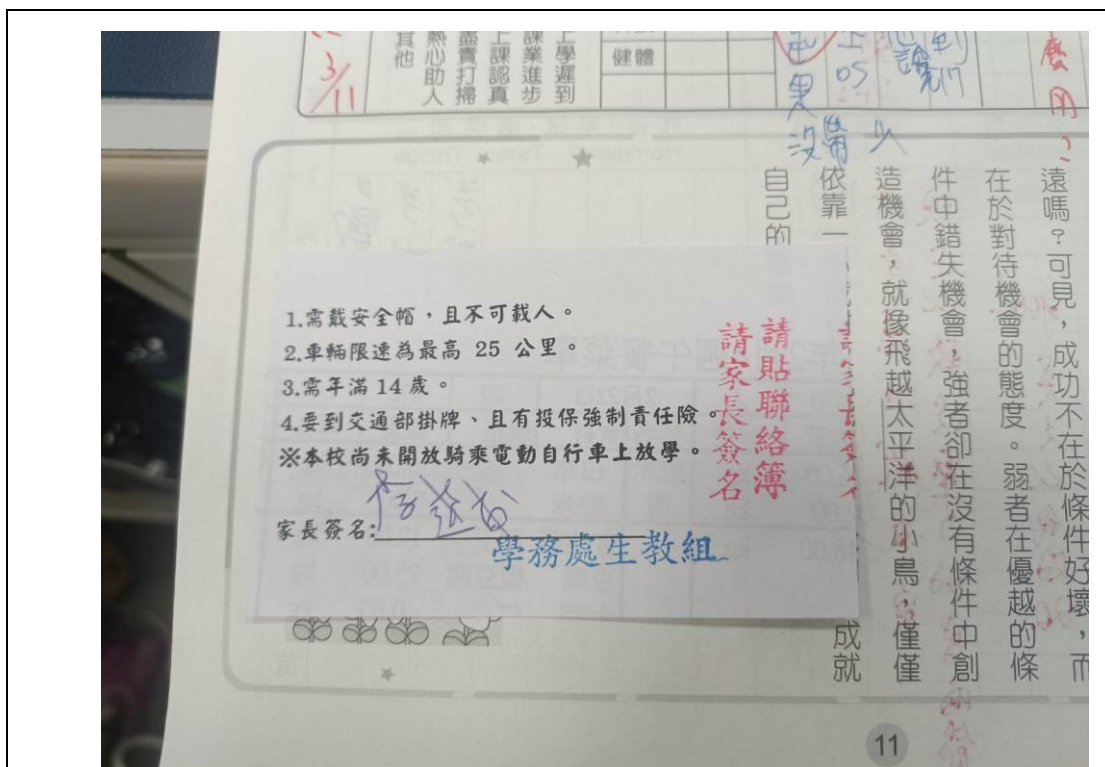 3/11
上學遲到
課業進步
上課認真
盡責打掃
熱心助人
其他
健體
沒帶
遠嗎？可見，成功不在於條件好壞，而
在於對待機會的態度。弱者在優越的條
件中錯失機會，強者卻在沒有條件中創
造機會，就像飛越太平洋的小鳥，僅僅
依靠一
成就
自己的
1.需戴安全帽，且不可載人。
2.車輛限速為最高 25 公里。
3.需年滿 14 歲。
4.要到交通部掛牌、且有投保強制責任險。
※本校尚未開放騎乘電動自行車上放學。
家長簽名:
請貼聯絡簿
請家長簽名
學務處生教組
11